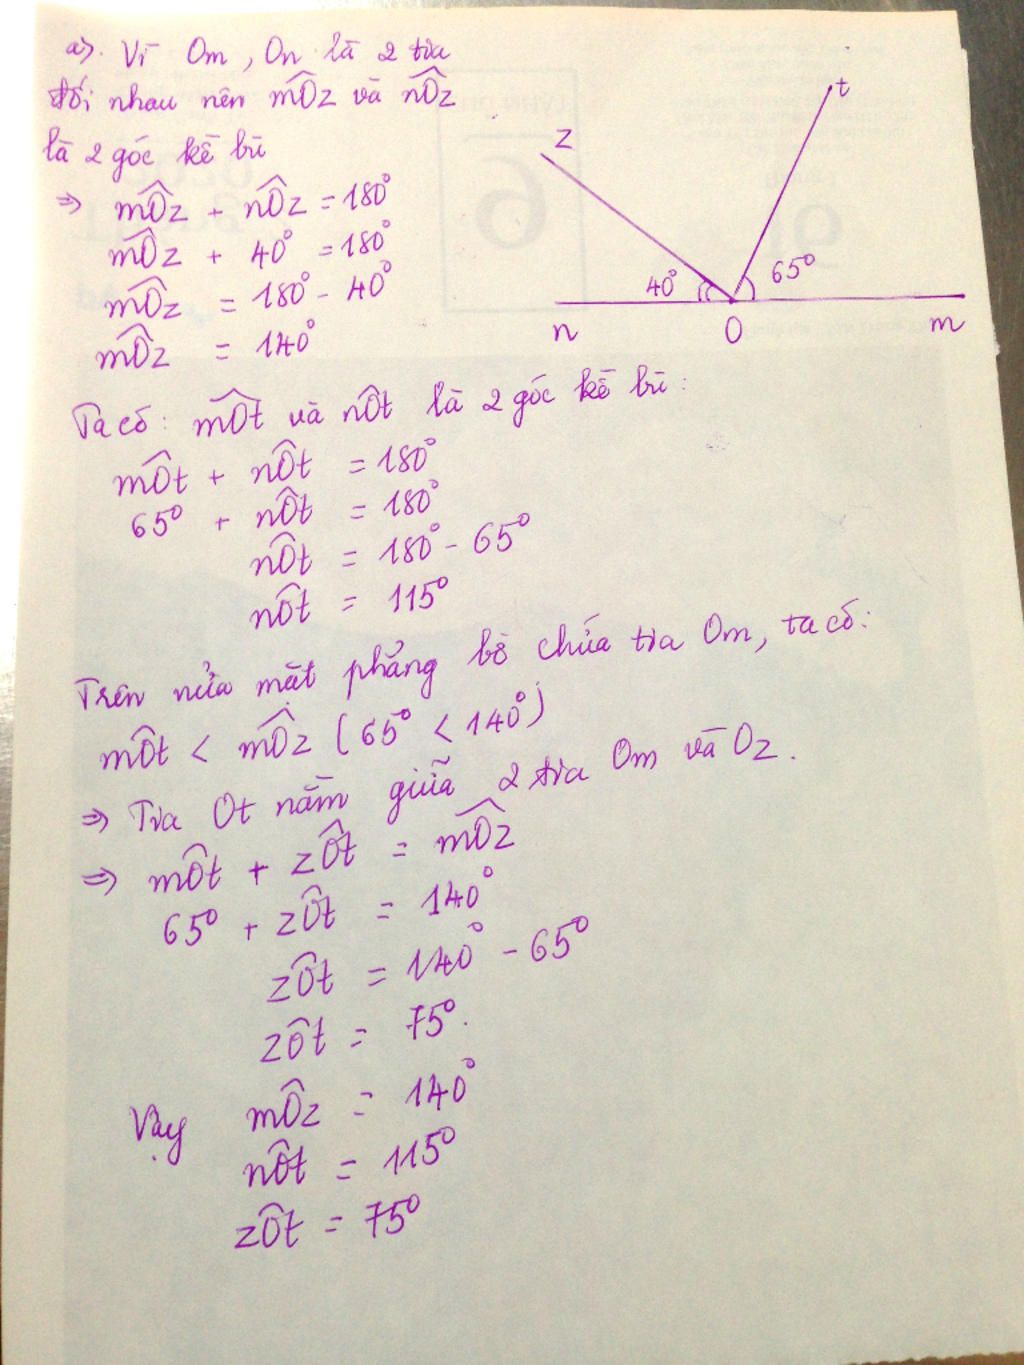 a). Vì Om, On là 2 tia
đối nhau nên mÔz và nÔz
là 2 góc kề bù
⇒ mÔz + nÔz = 180°
mÔz + 40° = 180°
mÔz = 180° - 40°
mÔz = 140°
z
t
40°
65°
n
O
m
Ta có: mÔt và nÔt là 2 góc kề bù:
mÔt + nÔt = 180°
65° + nÔt = 180°
nÔt = 180° - 65°
nÔt = 115°
Trên nửa mặt phẳng bờ chứa tia Om, ta có:
mÔt < mÔz (65° < 140°)
⇒ Tia Ot nằm giữa 2 tia Om và Oz.
⇒ mÔt + zÔt = mÔz
65° + zÔt = 140°
zÔt = 140° - 65°
zÔt = 75°.
Vậy mÔz = 140°
nÔt = 115°
zÔt = 75°